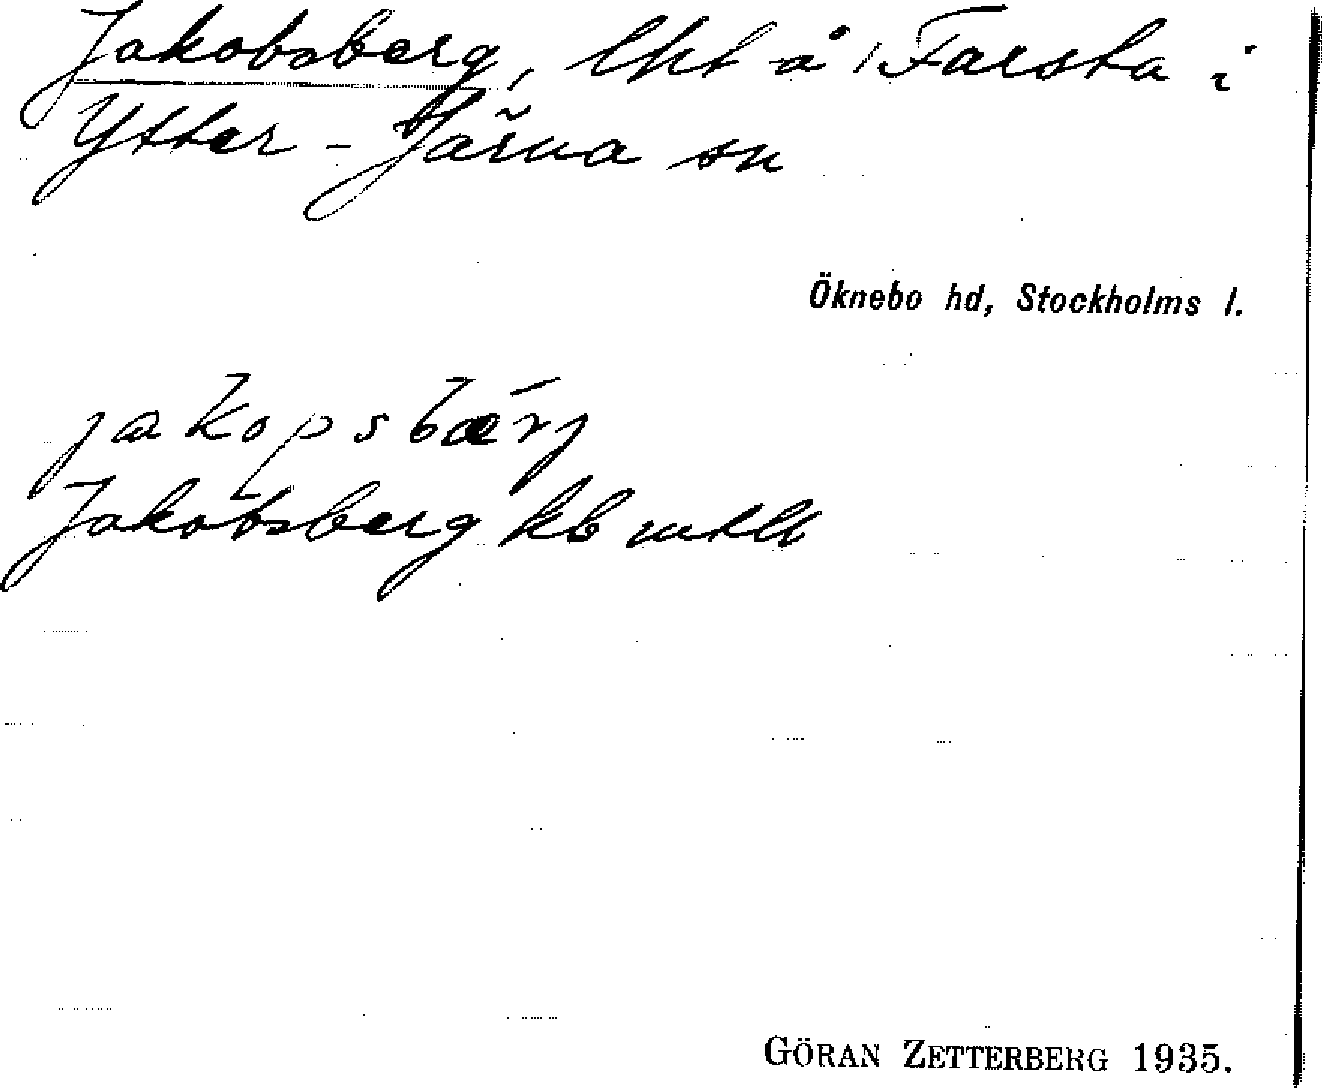 Jakobsberg, lht å Farsta i
Ytter-Järna sn
Öknebo hd, Stockholms l.
jakopsbærj
Jakobsberg kb mtll
GÖRAN ZETTERBERG 1935.